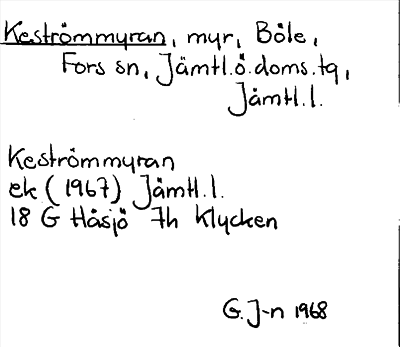 Keströmmyran, myr, Böle,
Fors sn, Jämtl.ö.doms.tg,
Jämtl.l.
Keströmmyran
ek (1967) Jämtl.l.
18 G Håsjö 7h Klycken
G. J-n 1968